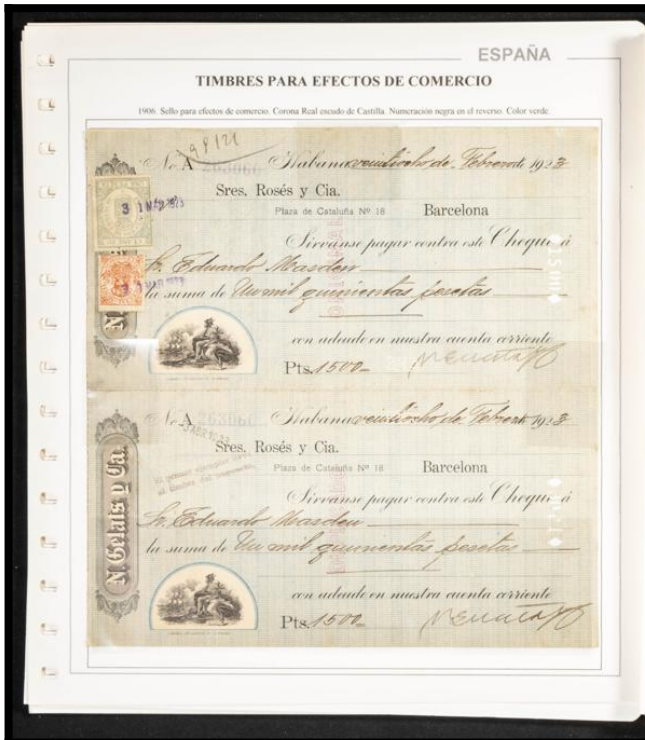 ESPAÑA
TIMBRES PARA EFECTOS DE COMERCIO
1906. Sello para efectos de comercio. Corona Real escudo de Castilla. Numeración negra en el reverso. Color verde.
No. A 263066 Habana veintiocho de Febrero de 1923
Sres. Rosés y Cia.
Plaza de Cataluña Nº 18 Barcelona
Sírvanse pagar contra este Cheque á
Sr. Eduardo Masdeu
la suma de Un mil quinientas pesetas
con adeudo en nuestra cuenta corriente
Pts. 1500=
No. A 263066 Habana veintiocho de Febrero de 1923
3 ABR 1923
Sres. Rosés y Cia.
Plaza de Cataluña Nº 18 Barcelona
El primer ejemplar lleva
el timbre del
Sírvanse pagar contra este Cheque á
Sr. Eduardo Masdeu
la suma de Un mil quinientas pesetas
con adeudo en nuestra cuenta corriente
Pts. 1500=
N. Gelats y Ca.